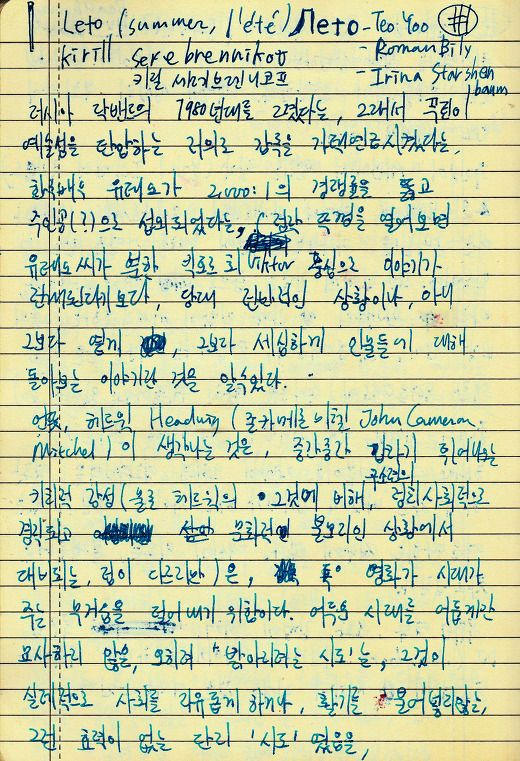 Leto (summer, l'été) Лето - Teo Yoo #
Kirill Serebrennikov - Roman Bily
키릴 세레브렌니코프 - Irina Starshenbaum
러시아 락밴드의 1980년대를 그렸다는, 그래서 푸틴이
예술성을 탄압하는 의미로 감독을 가택연금시켰다는,
한국배우 유태오가 2,000:1의 경쟁률을 뚫고
주인공(?)으로 섭외되었다는, 뚜껑을 열어보면
유태오씨가 분한 빅토르 최 Viktor 중심으로 이야기가
전개된다기보다, 당대 전반적인 상황이나, 아니
그보다 옅게, 그보다 세심하게 인물들에 대해
돌아보는 이야기란 것을 알 수 있다.
언뜻, 헤드윅 Hedwig (존 카메론 미첼 John Cameron
Mitchel)이 생각나는 것은, 중간중간 갑자기 튀어나오는
키치적 감성(물론 헤드윅의 그것에 비해, 구소련의 정치사회적으로
경직되고 문화적 불모지인 상황에서
대비되는, 결이 다르지만)은, 영화가 시대가
주는 무거움을 덜어내기 위함이다. 어두운 시대를 어둡게만
묘사하지 않은, 오히려 '밝아지려는 시도'는, 그것이
실제적으로 사회를 자유롭게 하거나, 활기를 불어넣진않는,
그런 효력이 없는 단지 '시도'였음을,